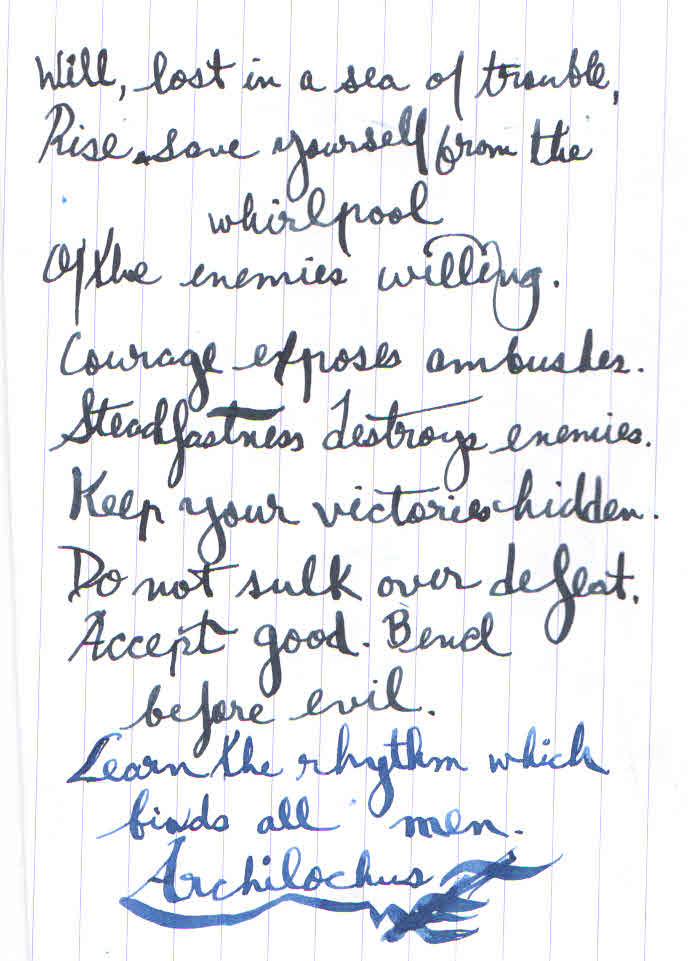 Will, lost in a sea of trouble,
Rise, save yourself from the
whirlpool
Of the enemies willing.
Courage exposes ambushes.
Steadfastness destroys enemies.
Keep your victories hidden.
Do not sulk over defeat.
Accept good. Bend
before evil.
Learn the rhythm which
binds all men.
Archilochus